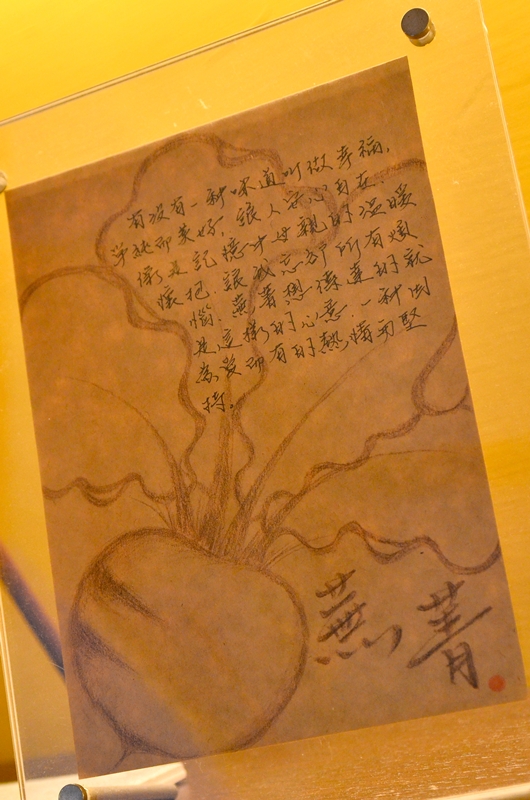 有沒有一種味道叫做幸福，
單純而美好，讓人安心自在。
像是記憶中母親的溫暖
懷抱，讓我忘卻所有煩
惱。蕪菁想傳達的就
是這樣的心意，一種
為最而有的熱情與堅
持。
蕪菁